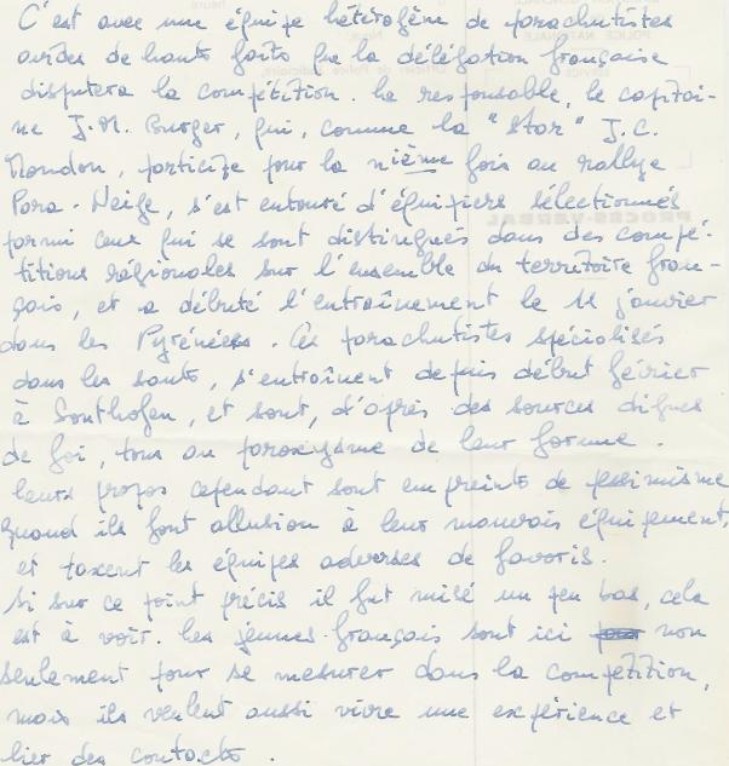 C'est avec une équipe hétérogène de parachutistes
avides de hauts faits que la délégation française
disputera la compétition. Le responsable, le capitai-
ne J.M. Burger, qui, comme la "star" J.C.
Mondon, participe pour la nième fois au rallye
Para-Neige, s'est entouré d'équipiers sélectionnés
parmi ceux qui se sont distingués dans des compé-
titions régionales sur l'ensemble du territoire fran-
çais, et a débuté l'entraînement le 11 janvier
dans les Pyrénées. Ces parachutistes spécialisés
dans les sauts, s'entraînent depuis début février
à Sonthofen, et sont, d'après des sources dignes
de foi, tous au paroxysme de leur forme.
Leurs propos cependant sont empreints de pessimisme
quand ils font allusion à leur mauvais équipement,
et taxent les équipes adverses de favoris.
Si sur ce point précis il fut misé un peu bas, cela
est à voir. Les jeunes français sont ici non
seulement pour se mesurer dans la compétition,
mais ils veulent aussi vivre une expérience et
lier des contacts.
PROCES-VERBAL